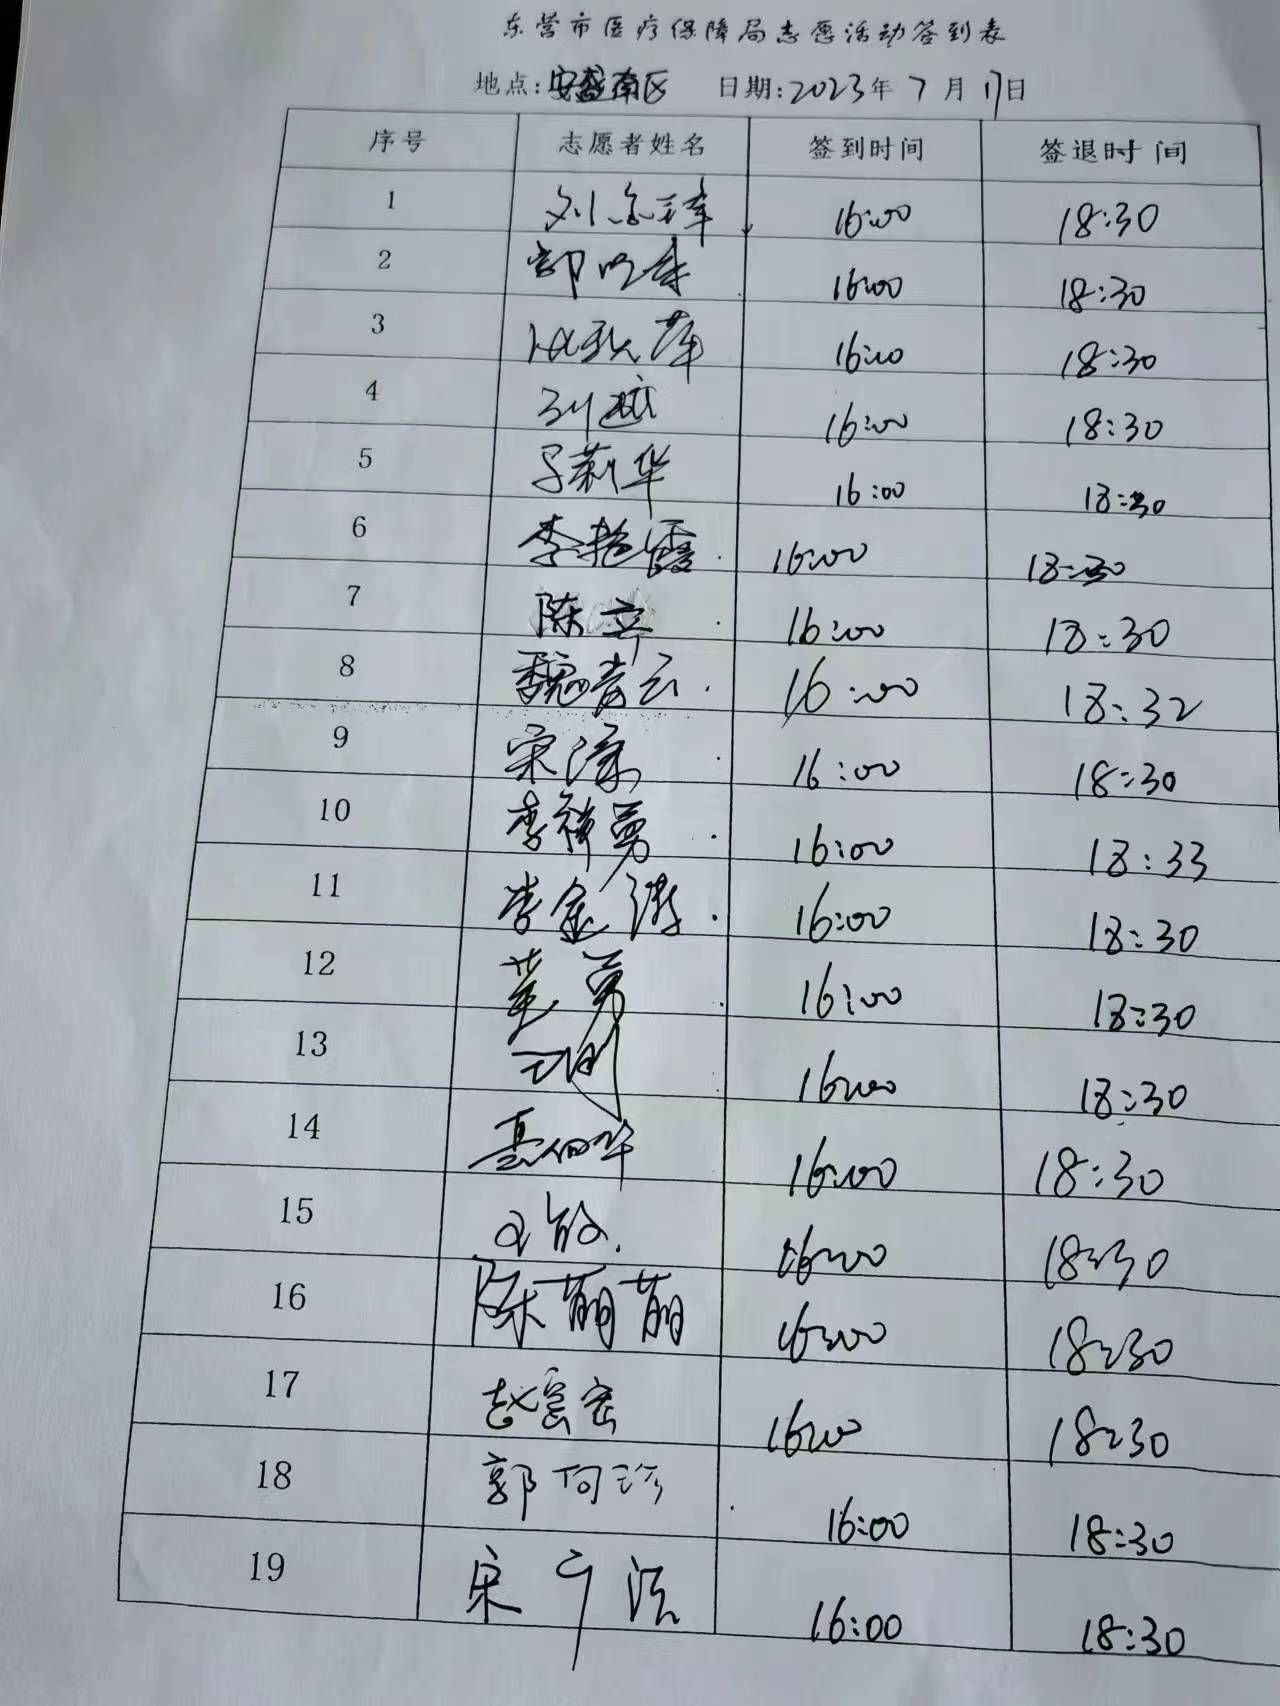 东营市医疗保障局志愿活动签到表
地点:安盛南区 日期:2023年7月17日
序号 志愿者姓名 签到时间 签退时间
1 16:00 18:30
2 16:00 18:30
3 16:00 18:30
4 刘越 16:00 18:30
5 于莉华 16:00 18:30
6 李艳霞 16:00 18:30
7 陈立 16:00 18:30
8 魏青云 16:00 18:32
9 宋涛 16:00 18:30
10 李祥勇 16:00 18:33
11 李金涛 16:00 18:30
12 董勇 16:00 18:30
13 16:00 18:30
14 16:00 18:30
15 16:00 18:30
16 陈萌萌 16:00 18:30
17 16:00 18:30
18 郭何珍 16:00 18:30
19 宋宁 16:00 18:30